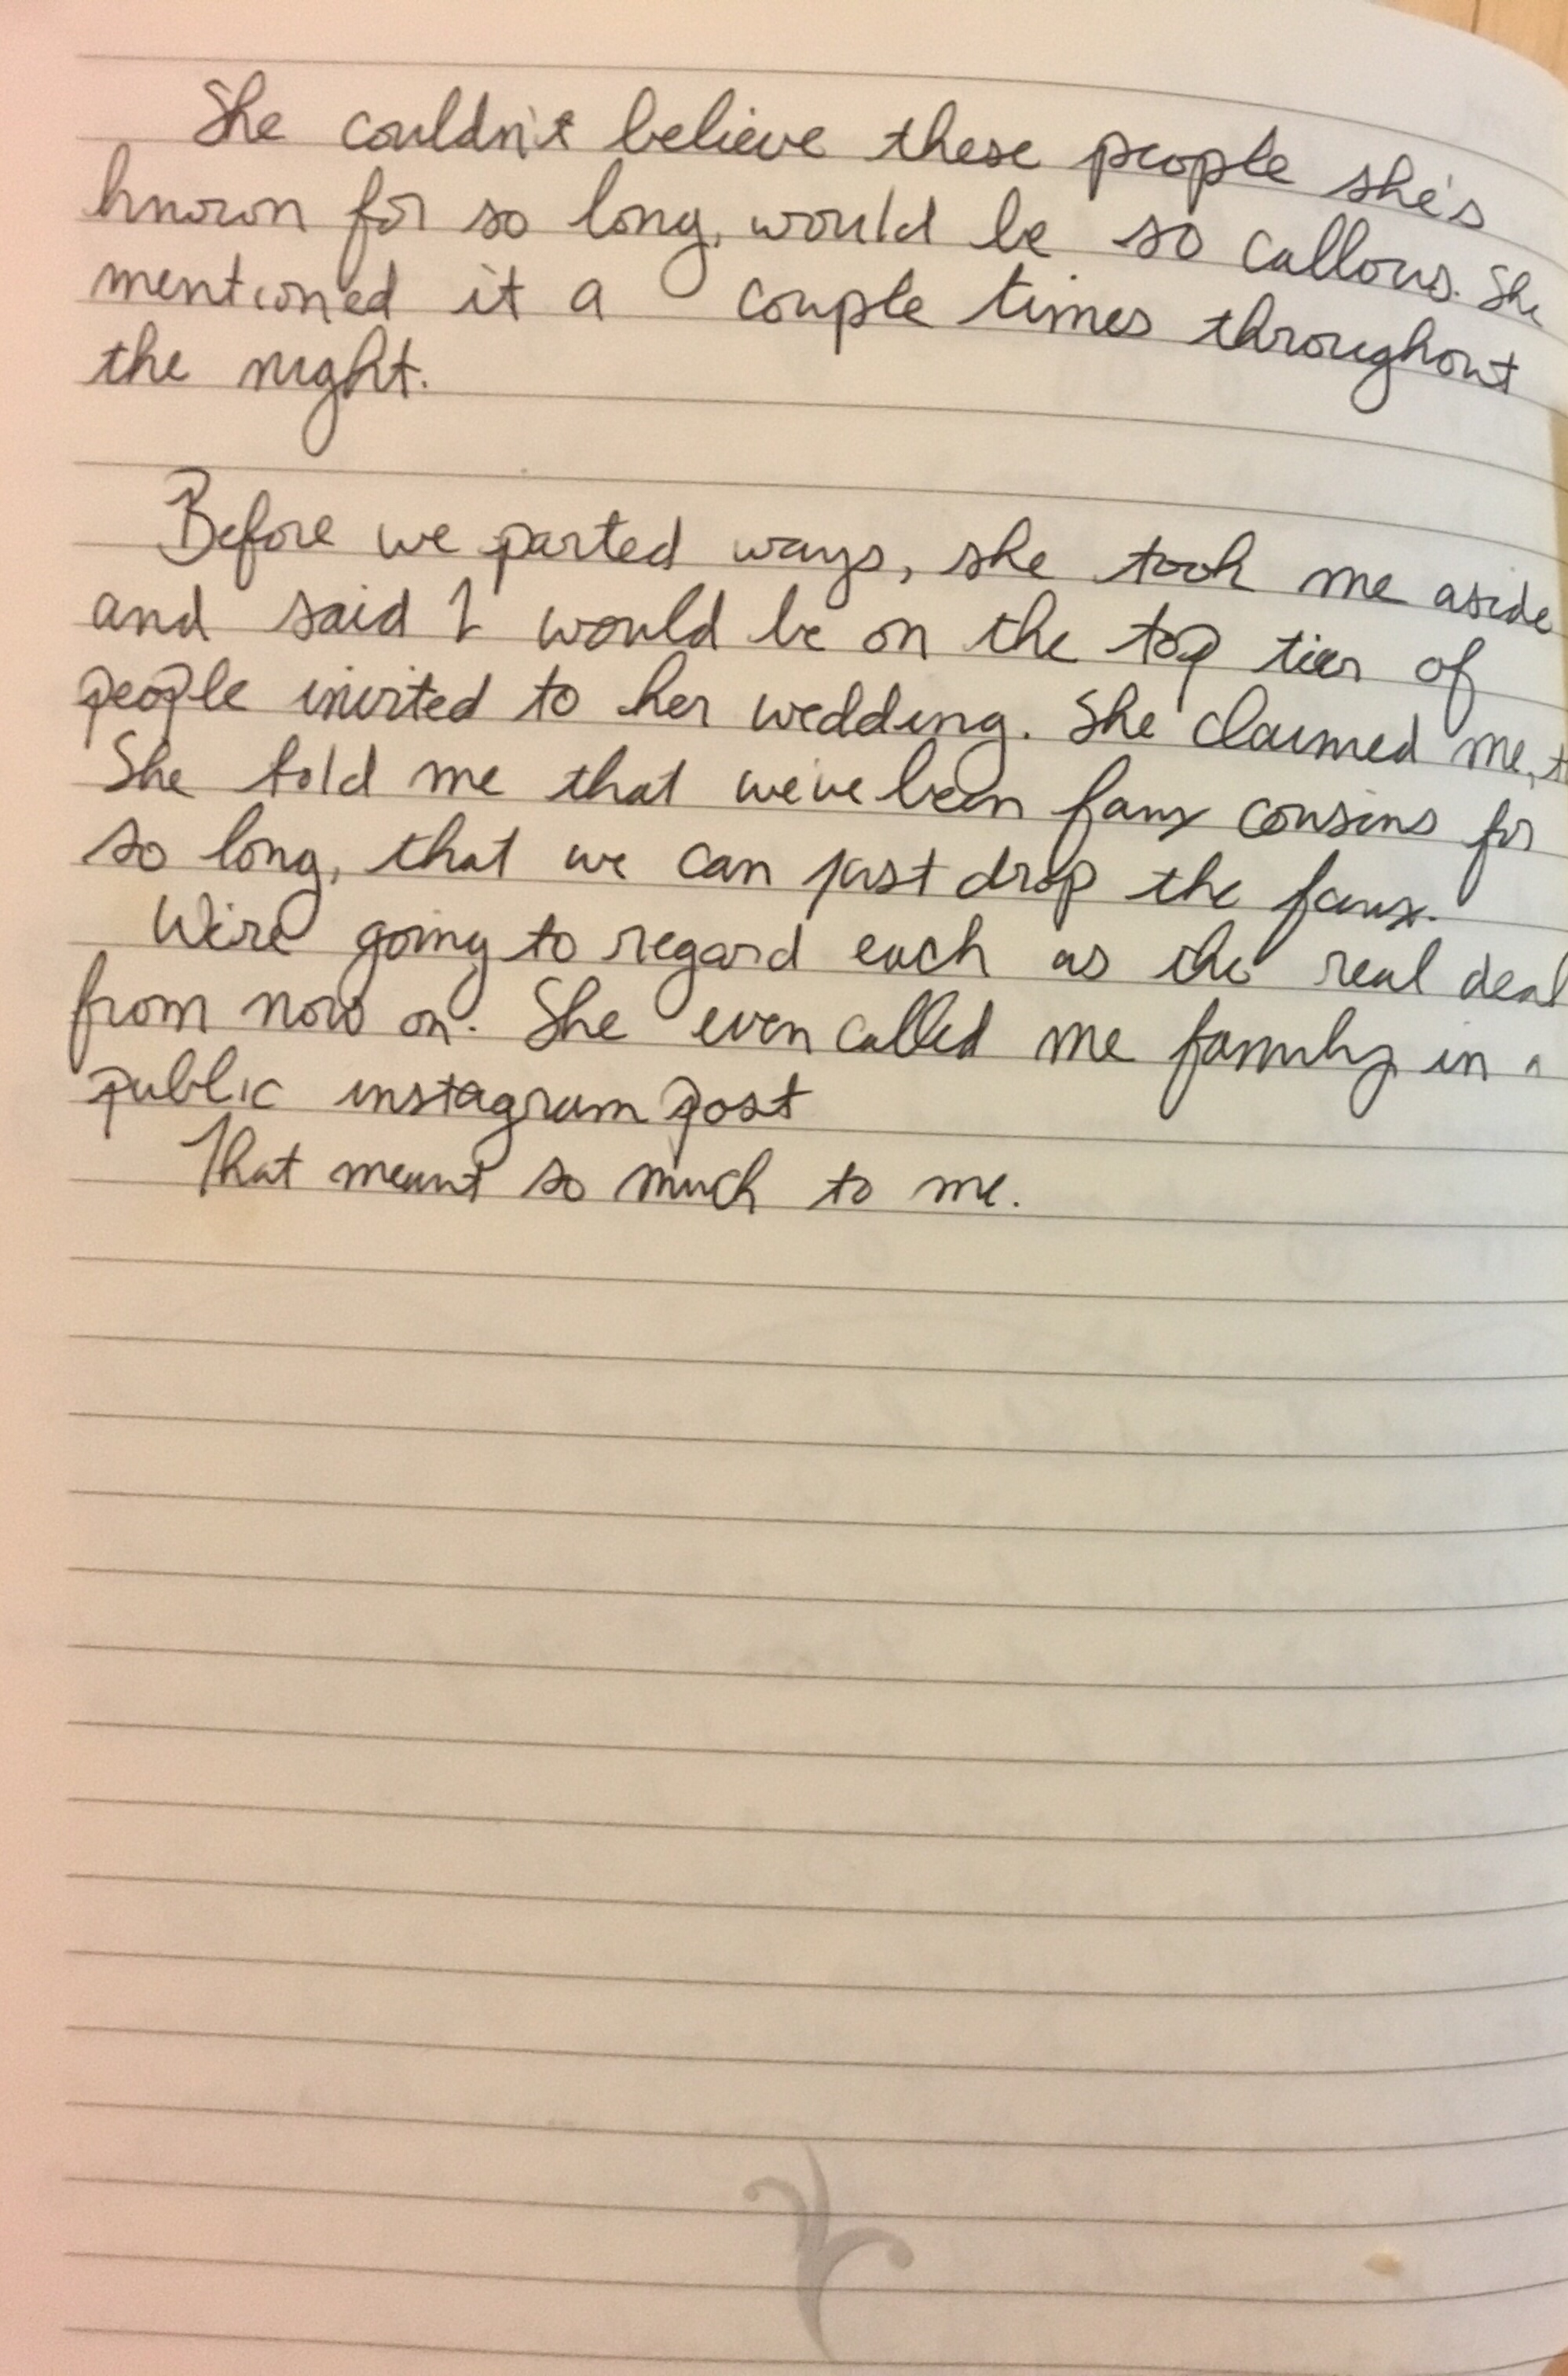 She couldn't believe these people she's
known for so long, would be so callous. She
mentioned it a couple times throughout
the night.
Before we parted ways, she took me aside
and said I would be on the top tier of
people invited to her wedding. She claimed me,
She told me that we've been faux cousins for
so long, that we can just drop the faux.
We're going to regard each as the real deal
from now on. She even called me family in a
public instagram post
That meant so much to me.